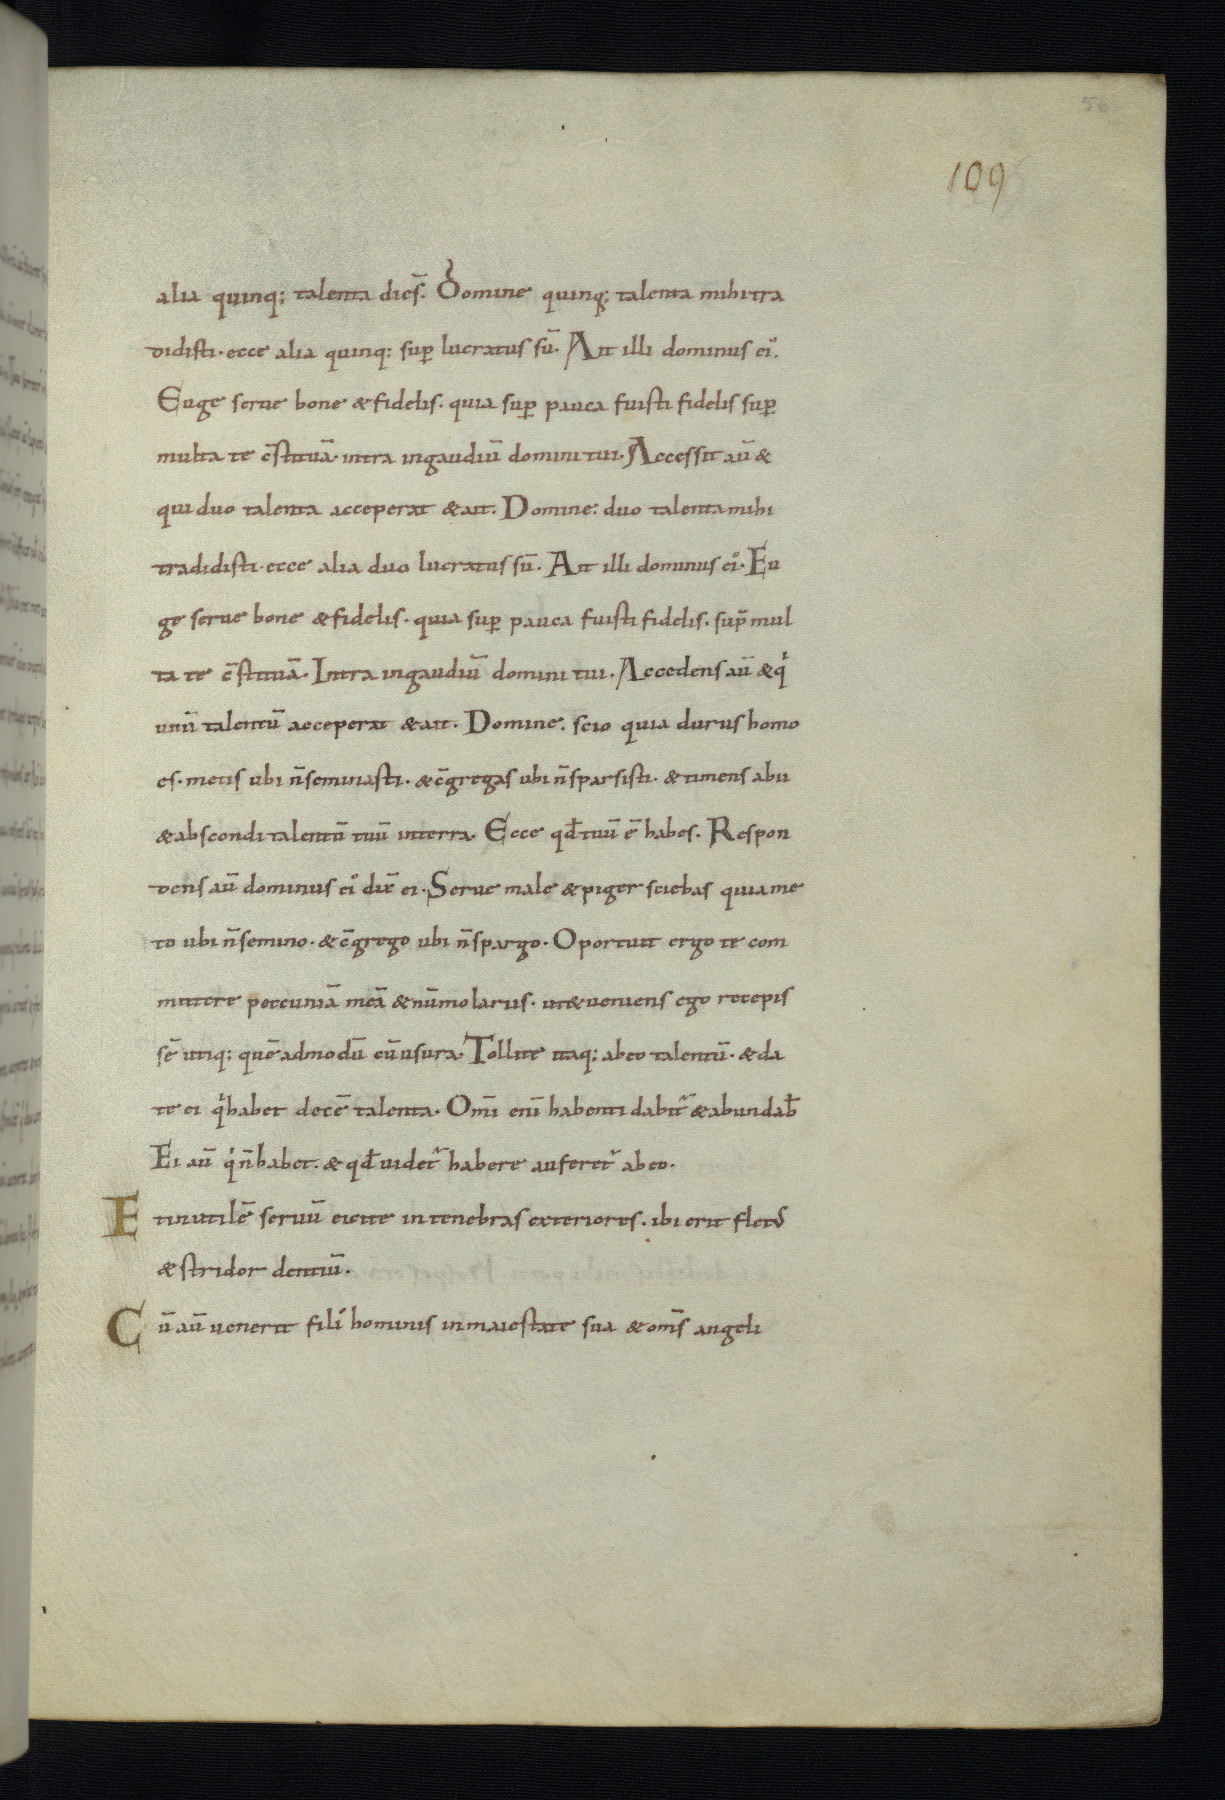 56
109
alia quinq; talenta dicẽs. Domine quinq; talenta mihi tra
didisti. ecce alia quinq; sup̱ lucratus sū. Ait illi dominus ei᷒.
Euge serue bone & fidelis. quia sup̱ pauca fuisti fidelis sup̱
multa te c̄stituā. intra ingaudiū domini tui. Accessit aū &
qui duo talenta acceperat & ait. Domine: duo talenta mihi
tradidisti. ecce alia duo lucratus sū. Ait illi dominus ei᷒. Eu
ge serue bone & fidelis. quia sup̱ pauca fuisti fidelis. sup̄ mul
ta te c̄stituā. Intra ingaudiū domini tui. Accedens aū & qͥ
unū talentū acceperat & ait. Domine. scio quia durus homo
es. metis ubi ñ seminasti. & c̄gregas ubi ñ sparsisti. & timens abii
& abscondi talentū tuū interra. Ecce qđ tuū ē habes. Respon
dens aū dominus ei᷒ dix̄ ei. Serue male & piger sciebas quia me
to ubi ñ semino. & c̄grego ubi ñ spargo. Oportuit ergo te com
mittere peccuniā meā & nūmolariis. ut & ueniens ego recepis
sē utiq; quēadmodū cū usura. Tollite itaq; ab eo talentū. & da
te ei qͥ habet decē talenta. Om̄i enī habenti dabit᷑ & abundab̄
Ei aū qͥ ñ habet. & qđ uidet᷑ habere auferet᷑ ab eo.
Et inutilē seruū eicite in tenebras exteriores. ibi erit flet᷒
& stridor dentiū.
Cū aū uenerit fili᷒ hominis in maiestate sua & om̄s angeli